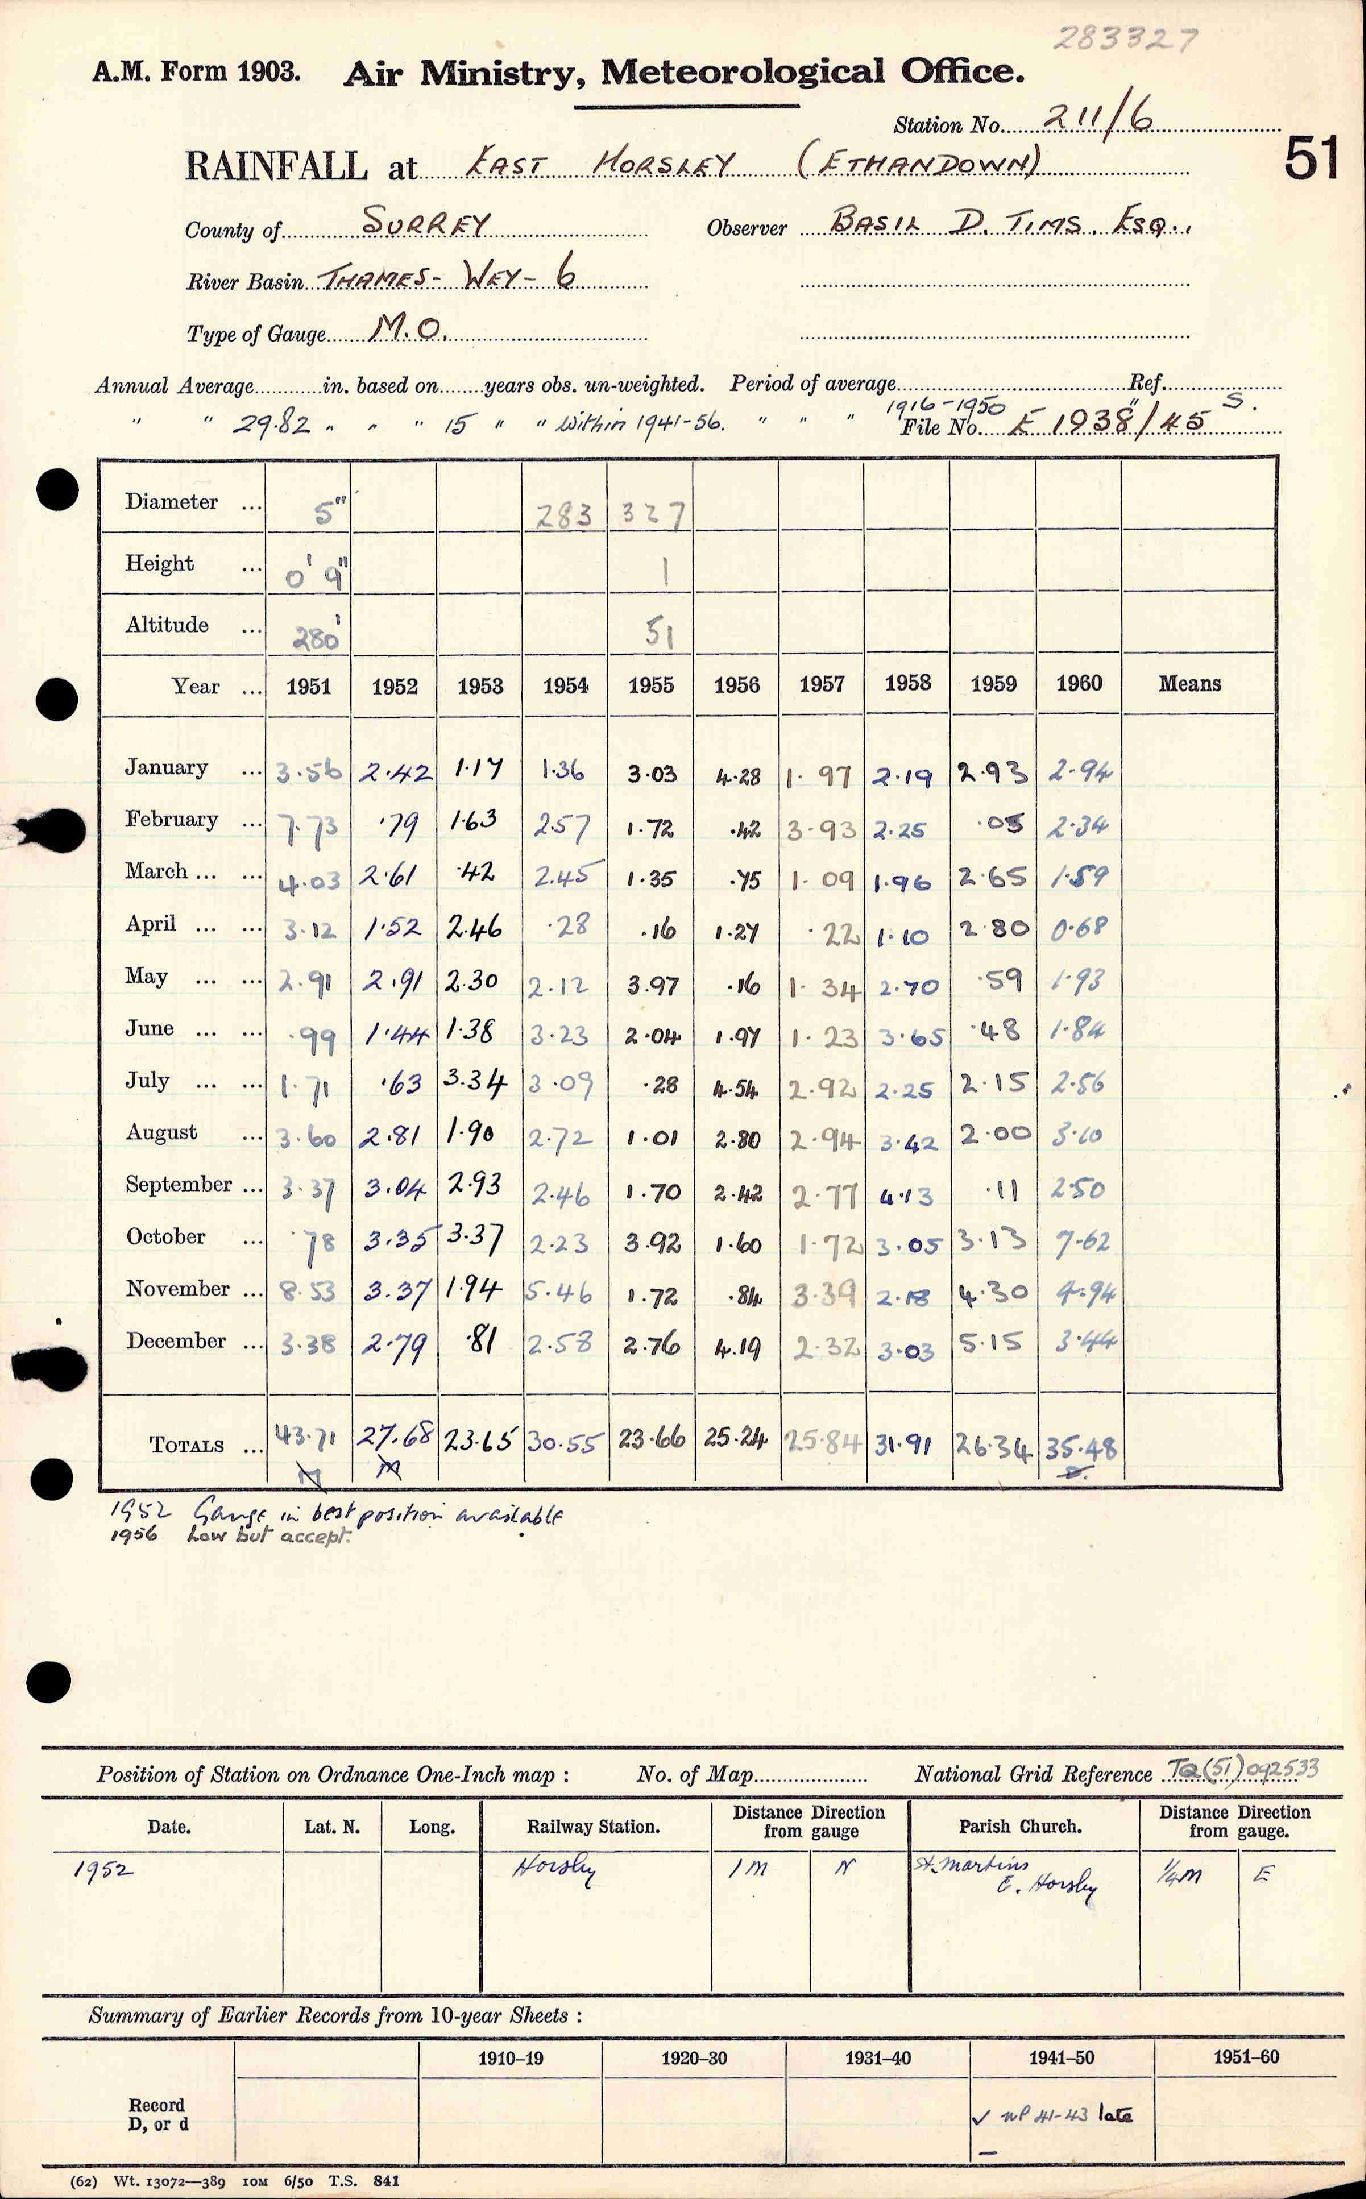 283327
A.M. Form 1903. Air Ministry, Meteorological Office.
Station No. 211/6
51
RAINFALL at EAST HORSLEY (ETHANDOWN)
County of SURREY Observer BASIL D. TIMS. ESQ.,
River Basin THAMES- WEY- 6
Type of Gauge M.O.
Annual Average in. based on years obs. un-weighted. Period of average Ref.
" " 29.82 " " " 15 " " within 1941-56. " " " 1916-1950 " S.
File No. E 1938/45
Diameter ... 5" 283 327
Height ... 0' 9" 1
Altitude ... 280' 51
Year ... 1951 1952 1953 1954 1955 1956 1957 1958 1959 1960 Means
January ... 3.56 2.42 1.17 1.36 3.03 4.28 1.97 2.19 2.93 2.94
February ... 7.73 .79 1.63 2.57 1.72 .42 3.93 2.25 .05 2.34
March ... ... 4.03 2.61 .42 2.45 1.35 .75 1.09 1.96 2.65 1.59
April ... ... 3.12 1.52 2.46 .28 .16 1.27 .22 1.10 2.80 0.68
May ... ... 2.91 2.91 2.30 2.12 3.97 .16 1.34 2.70 .59 1.93
June ... ... .99 1.44 1.38 3.23 2.04 1.97 1.23 3.65 .48 1.84
July ... ... 1.71 .63 3.34 3.09 .28 4.54 2.92 2.25 2.15 2.56
August ... 3.60 2.81 1.90 2.72 1.01 2.80 2.94 3.42 2.00 3.10
September ... 3.37 3.04 2.93 2.46 1.70 2.42 2.77 4.13 .11 2.50
October ... .78 3.35 3.37 2.23 3.92 1.60 1.72 3.05 3.13 7.62
November ... 8.53 3.37 1.94 5.46 1.72 .84 3.39 2.18 4.30 4.94
December ... 3.38 2.79 .81 2.58 2.76 4.19 2.32 3.03 5.15 3.44
TOTALS ... 43.71 27.68 23.65 30.55 23.66 25.24 25.84 31.91 26.34 35.48
M M
1952 Gauge in best position available
1956 Low but accept.
Position of Station on Ordnance One-Inch map : No. of Map National Grid Reference TQ(51)092533
Date. Lat. N. Long. Railway Station. Distance Direction from gauge Parish Church. Distance Direction from gauge.
1952 Horsley 1 M N St. Martins E. Horsley 1/4M E
Summary of Earlier Records from 10-year Sheets :
1910–19 1920–30 1931–40 1941–50 1951–60
Record
D, or d
✓ NP 41-43 late
–
(62) Wt. 13072—389 10M 6/50 T.S. 841